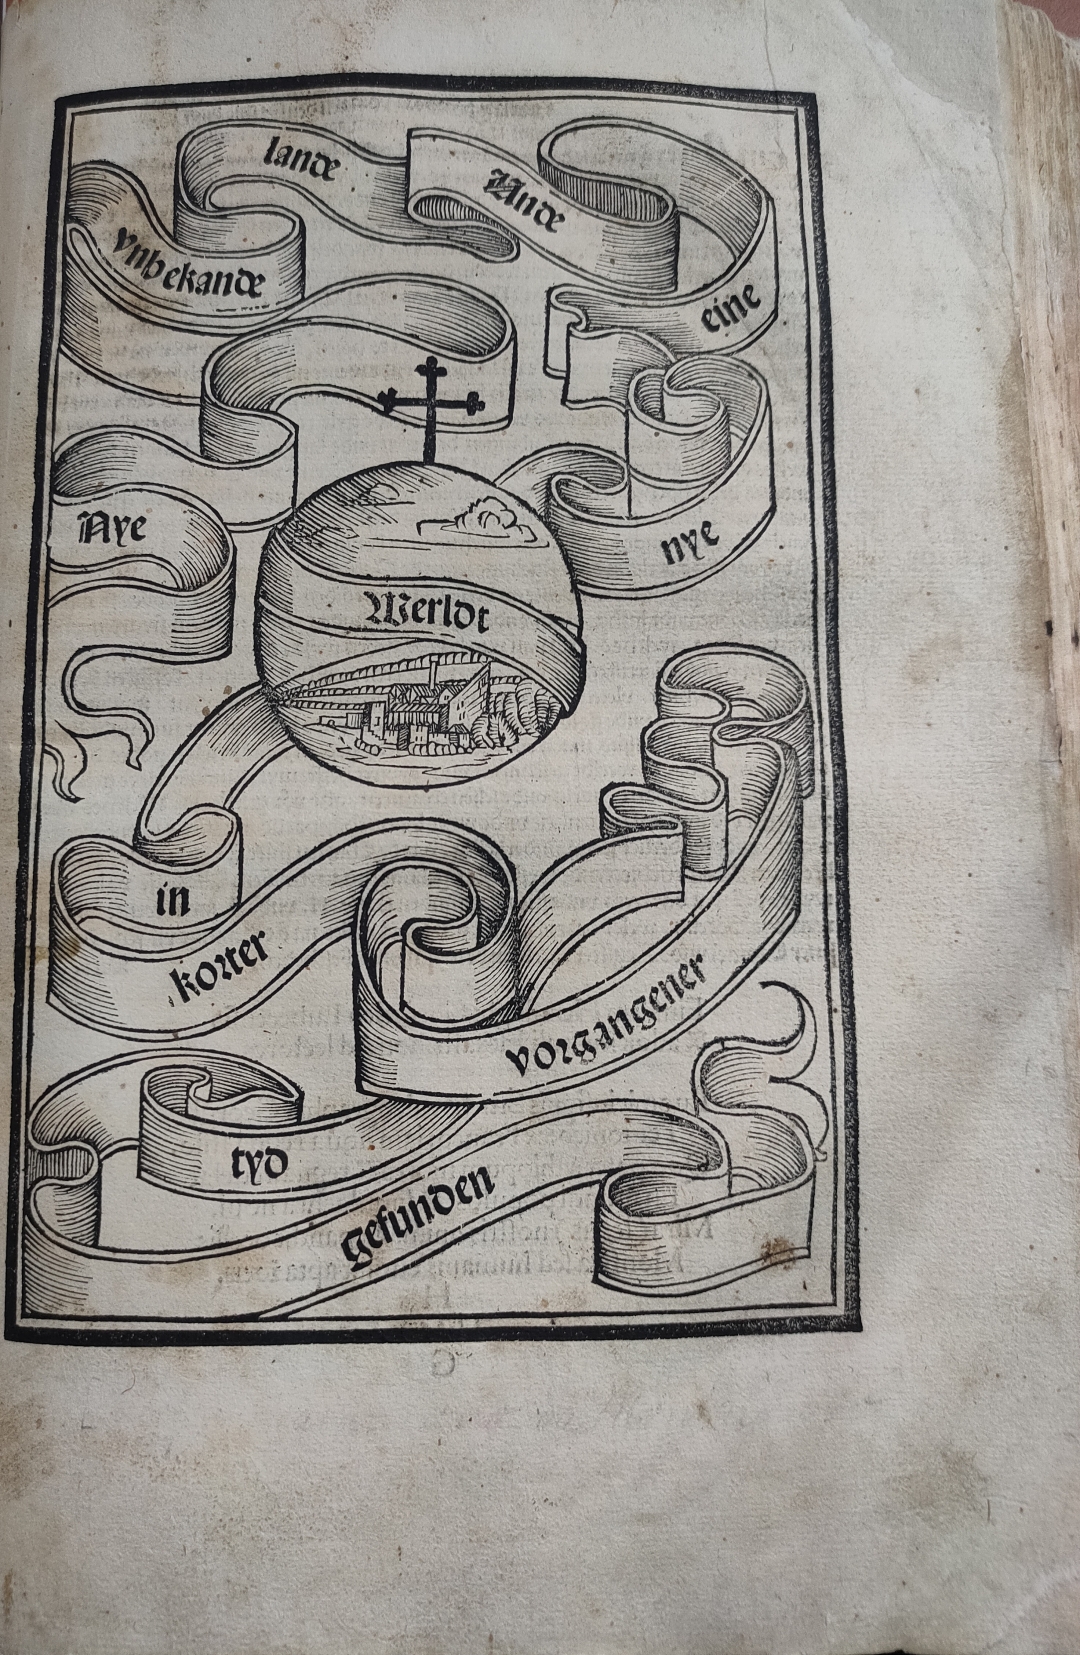 Nye
vnbekande
lande
Unde
eine
nye
Werldt
in
korter
vorgangener
tyd
gefunden